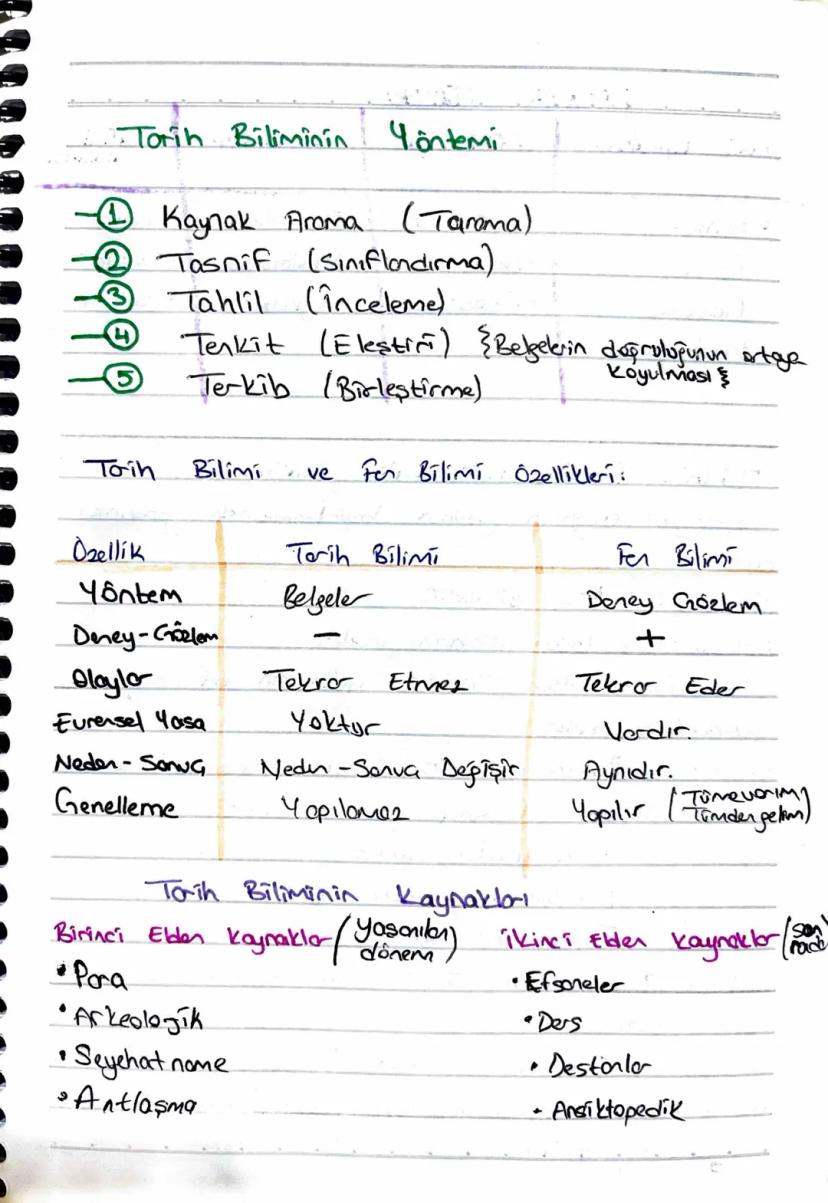 Tarih Biliminin Yöntemi
1 Kaynak Arama (Tarama)
2 Tasnif (Sınıflandırma)
3 Tahlil (İnceleme)
4 Tenkit (Eleştiri) {Belgelerin doğruluğunun ortaya
koyulması}
5 Terkib (Birleştirme)
Tarih Bilimi ve Fen Bilimi Özellikleri:
Özellik Tarih Bilimi Fen Bilimi
Yöntem Belgeler Deney Gözlem
Deney-Gözlem - +
Olaylar Tekrar Etmez Tekrar Eder
Evrensel Yasa Yoktur Vardır.
Neden-Sonuç Neden-Sonuç Değişir Aynıdır.
Genelleme Yapılamaz Yapılır (Tümevarım/Tümdengelim)
Tarih Biliminin Kaynakları
Birinci Elden Kaynaklar (yaşanılan dönem) İkinci Elden Kaynaklar (son
• Para • Efsaneler
• Arkeolojik • Ders
• Seyehatname • Destanlar
• Antlaşma • Ansiktopedik